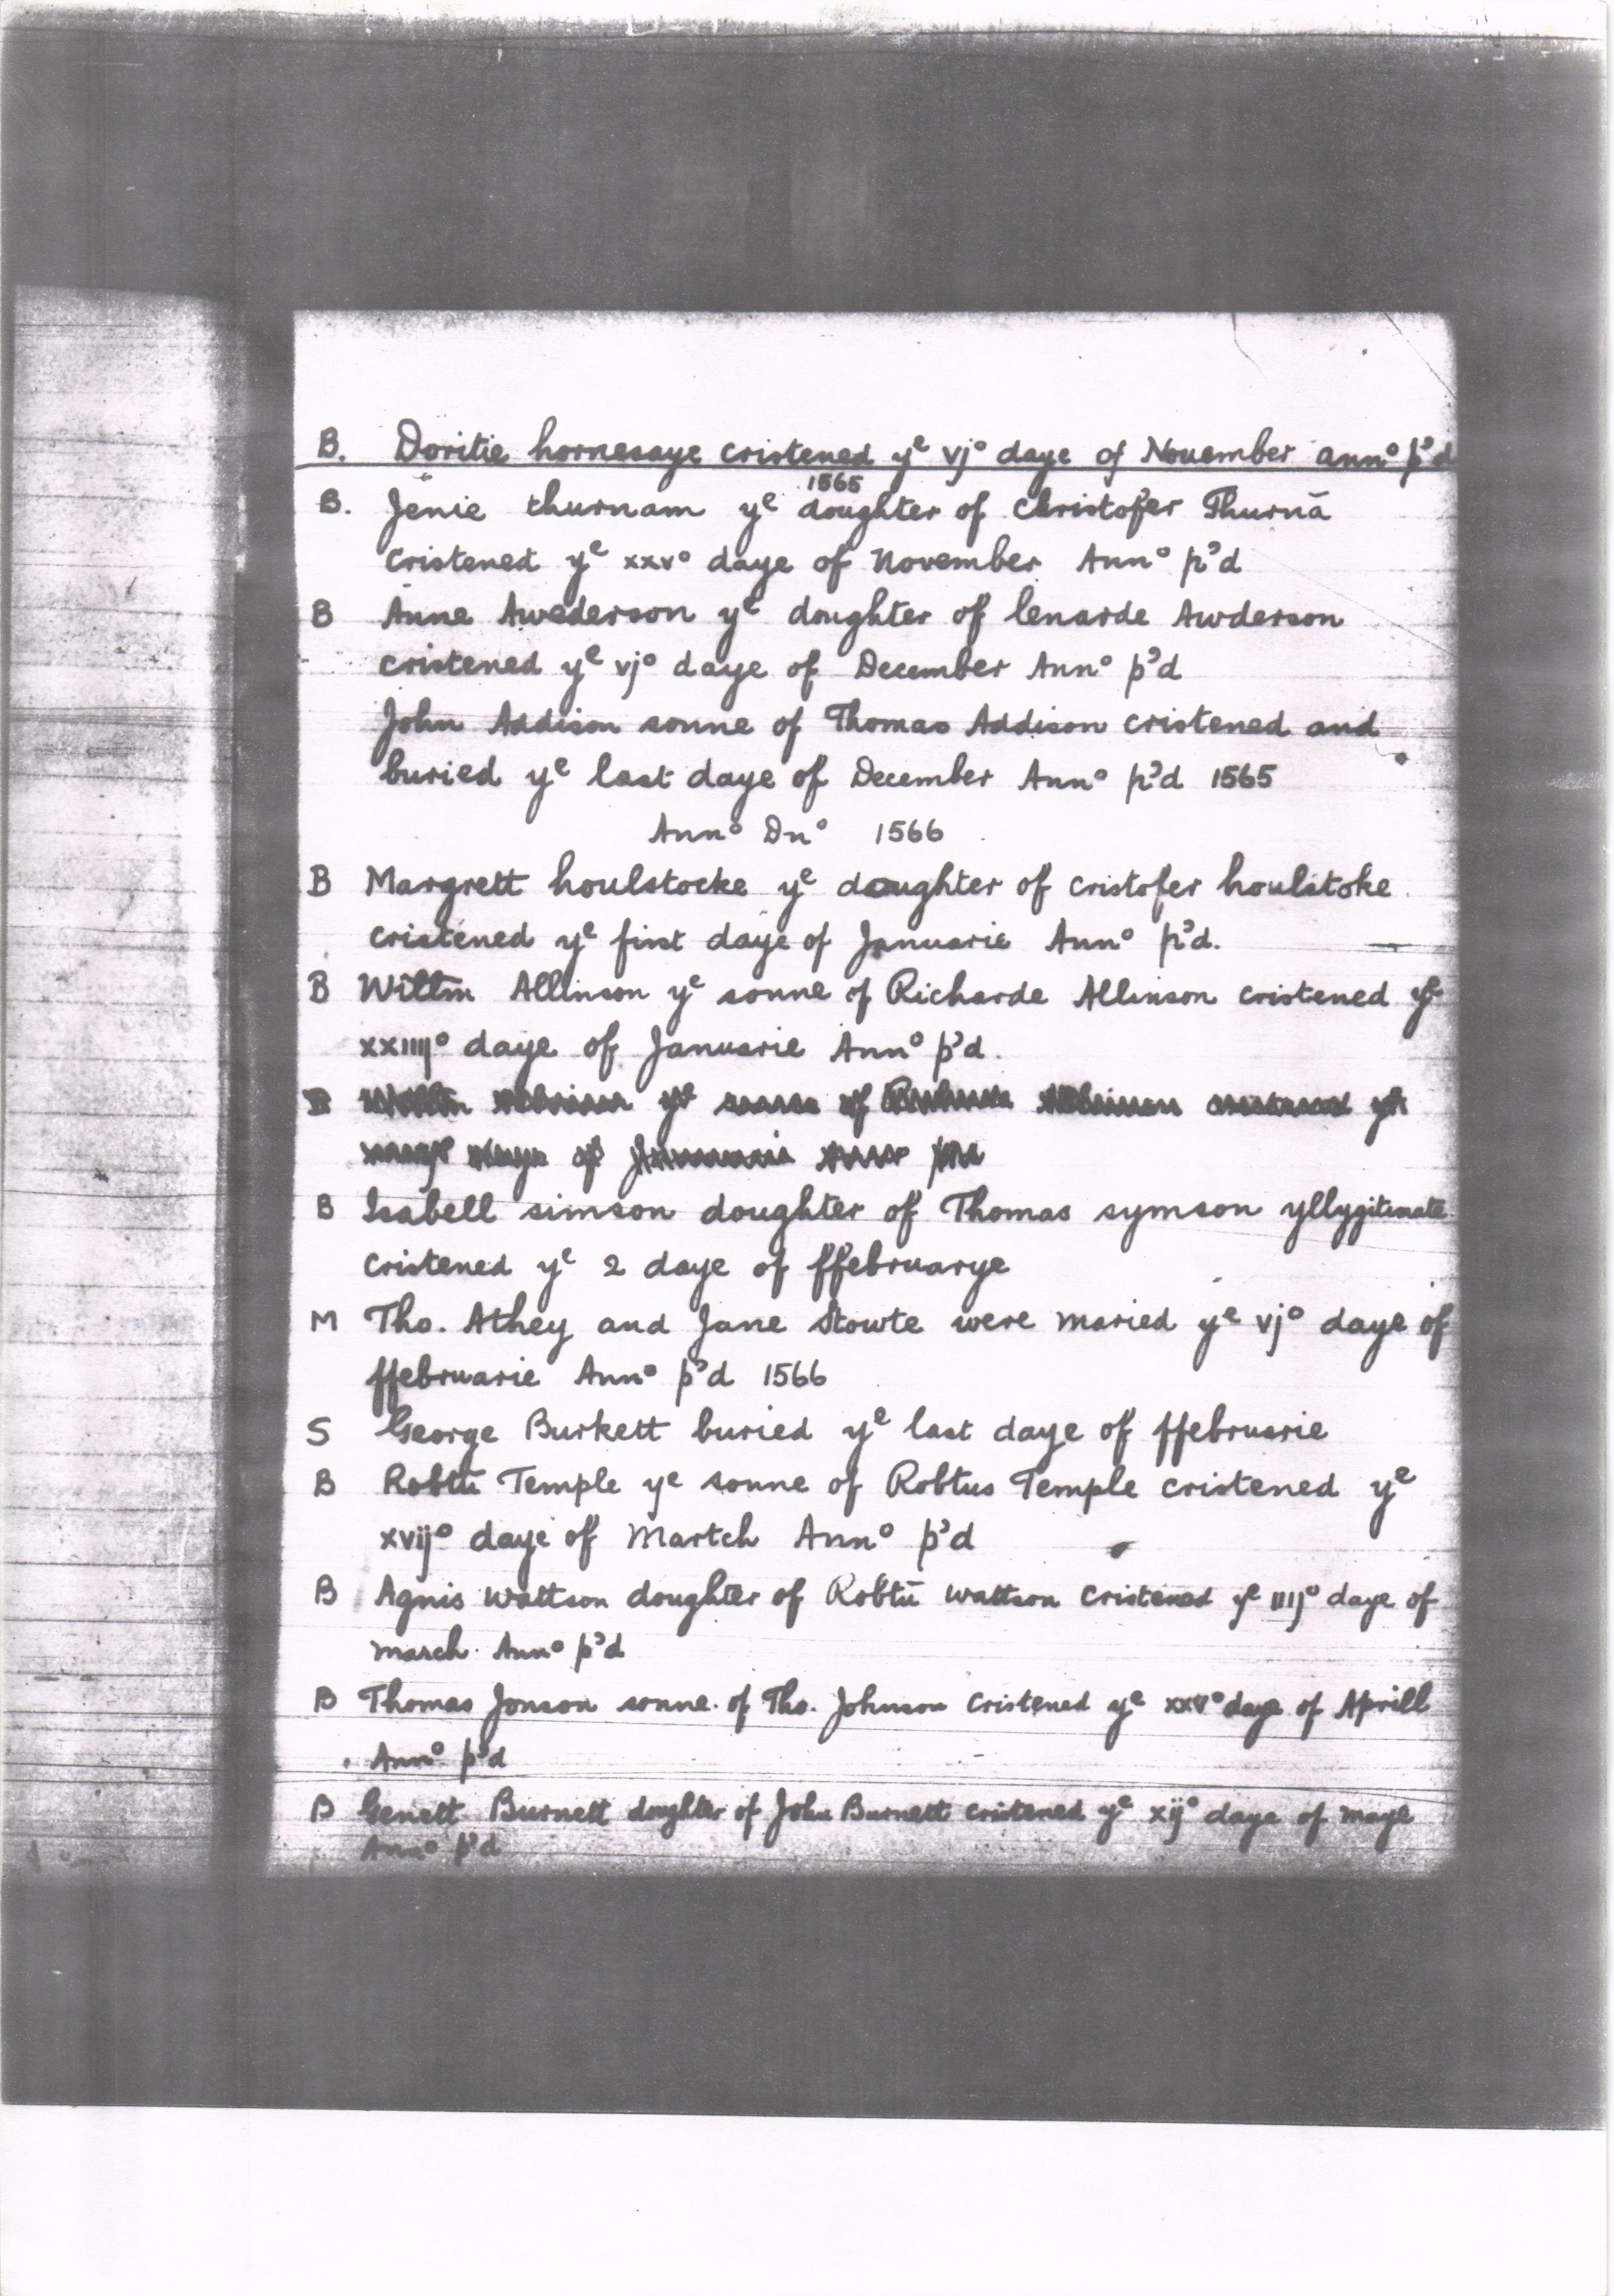 B. Doritie hornesaye cristened yᵉ vjº daye of Nouember annº p'd
1565
B. Jenie thurnam yᵉ doughter of Christofer Thurnā
cristened yᵉ xxvº daye of November Annº p'd
B Anne Awederson yᵉ doughter of lenarde Awderson
cristened yᵉ vjº daye of December Annº p'd
John Addison sonne of Thomas Addison cristened and
buried yᵉ last daye of December Annº p'd 1565
Annº Dnº 1566
B Margrett houlstocke yᵉ doughter of cristofer houlstoke
cristened yᵉ first daye of Januarie Annº p'd.
B Willm Allinson yᵉ sonne of Richarde Allinson cristened yᵉ
xxiiijº daye of Januarie Annº p'd.
B Isabell simson doughter of Thomas symson yllygitimate
cristened yᵉ 2 daye of ffebruarye
M Tho. Athey and Jane Stowte were maried yᵉ vjº daye of
ffebruarie Annº p'd 1566
S George Burkett buried yᵉ last daye of ffebruarie
B Robtū Temple yᵉ sonne of Robtus Temple cristened yᵉ
xvijº daye of Martch Annº p'd
B Agnis Wattson doughter of Robtū wattson cristened yᵉ iiijº daye of
march Annº p'd
B Thomas Jonson sonne of Tho. Johnson cristened yᵉ xxvº daye of Aprill
Annº p'd
B Genett Burnett doughter of John Burnett cristened yᵉ xijº daye of maye
Annº p'd